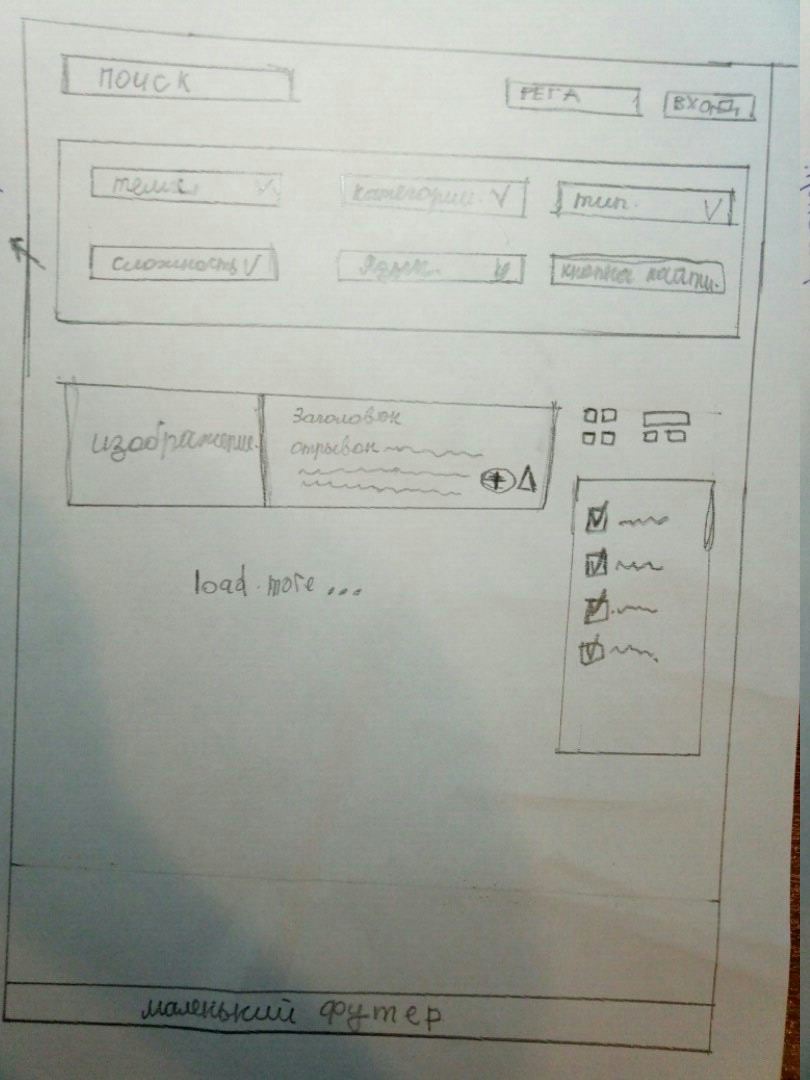 ПОИСК
РЕГА
ВХОД
тема
категории
тип
сложность
Язык
кнопка найти
изображение
Заголовок
отрывок
load more ...
маленький футер